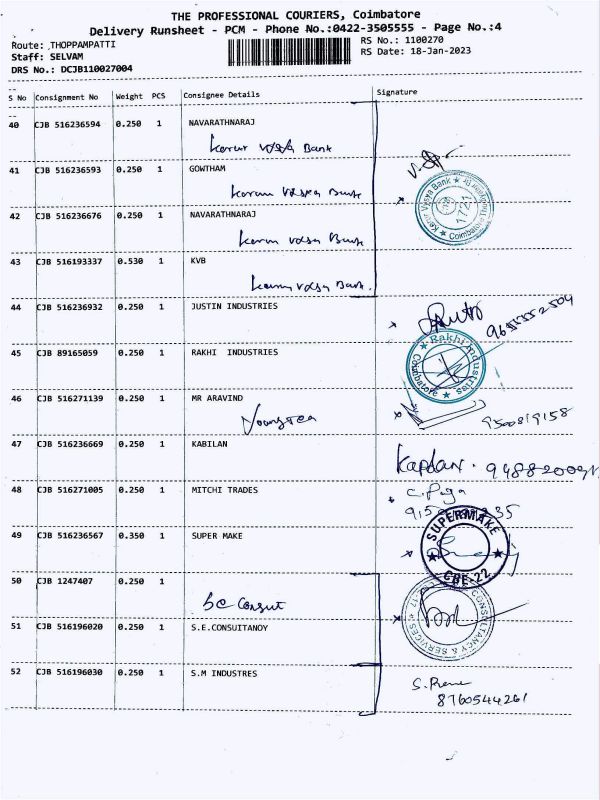 THE PROFESSIONAL COURIERS, Coimbatore
Delivery Runsheet - PCM - Phone No.:0422-3505555 - Page No.:4
Route: THOPPAMPATTI
RS No.: 1100270
Staff: SELVAM
RS Date: 18-Jan-2023
DRS No.: DCJB110027004
S No Consignment No Weight PCS Consignee Details Signature
40 CJB 516236594 0.250 1 NAVARATHNARAJ
Karur Vysya Bank
41 CJB 516236593 0.250 1 GOWTHAM
Karur Vysya Bank
Karur Vysya Bank
Coimbatore
42 CJB 516236676 0.250 1 NAVARATHNARAJ
Karur Vysya Bank
43 CJB 516193337 0.530 1 KVB
Karur Vysya Bank.
44 CJB 516236932 0.250 1 JUSTIN INDUSTRIES
45 CJB 89165059 0.250 1 RAKHI INDUSTRIES
Rakhi Industries
Coimbatore
46 CJB 516271139 0.250 1 MR ARAVIND
9500819158
47 CJB 516236669 0.250 1 KABILAN
48 CJB 516271005 0.250 1 MITCHI TRADES
49 CJB 516236567 0.350 1 SUPER MAKE
SUPERMAKE
CBE-22
50 CJB 1247407 0.250 1
CONSULTANCY & SERVICES
51 CJB 516196020 0.250 1 S.E.CONSUITANOY
52 CJB 516196030 0.250 1 S.M INDUSTRES
8760544261